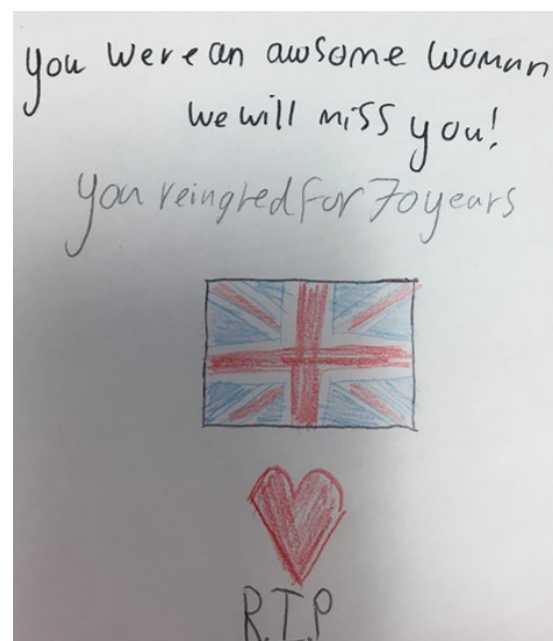 you were an awsome woman
we will miss you!
you reingred for 70 years
R.I.P